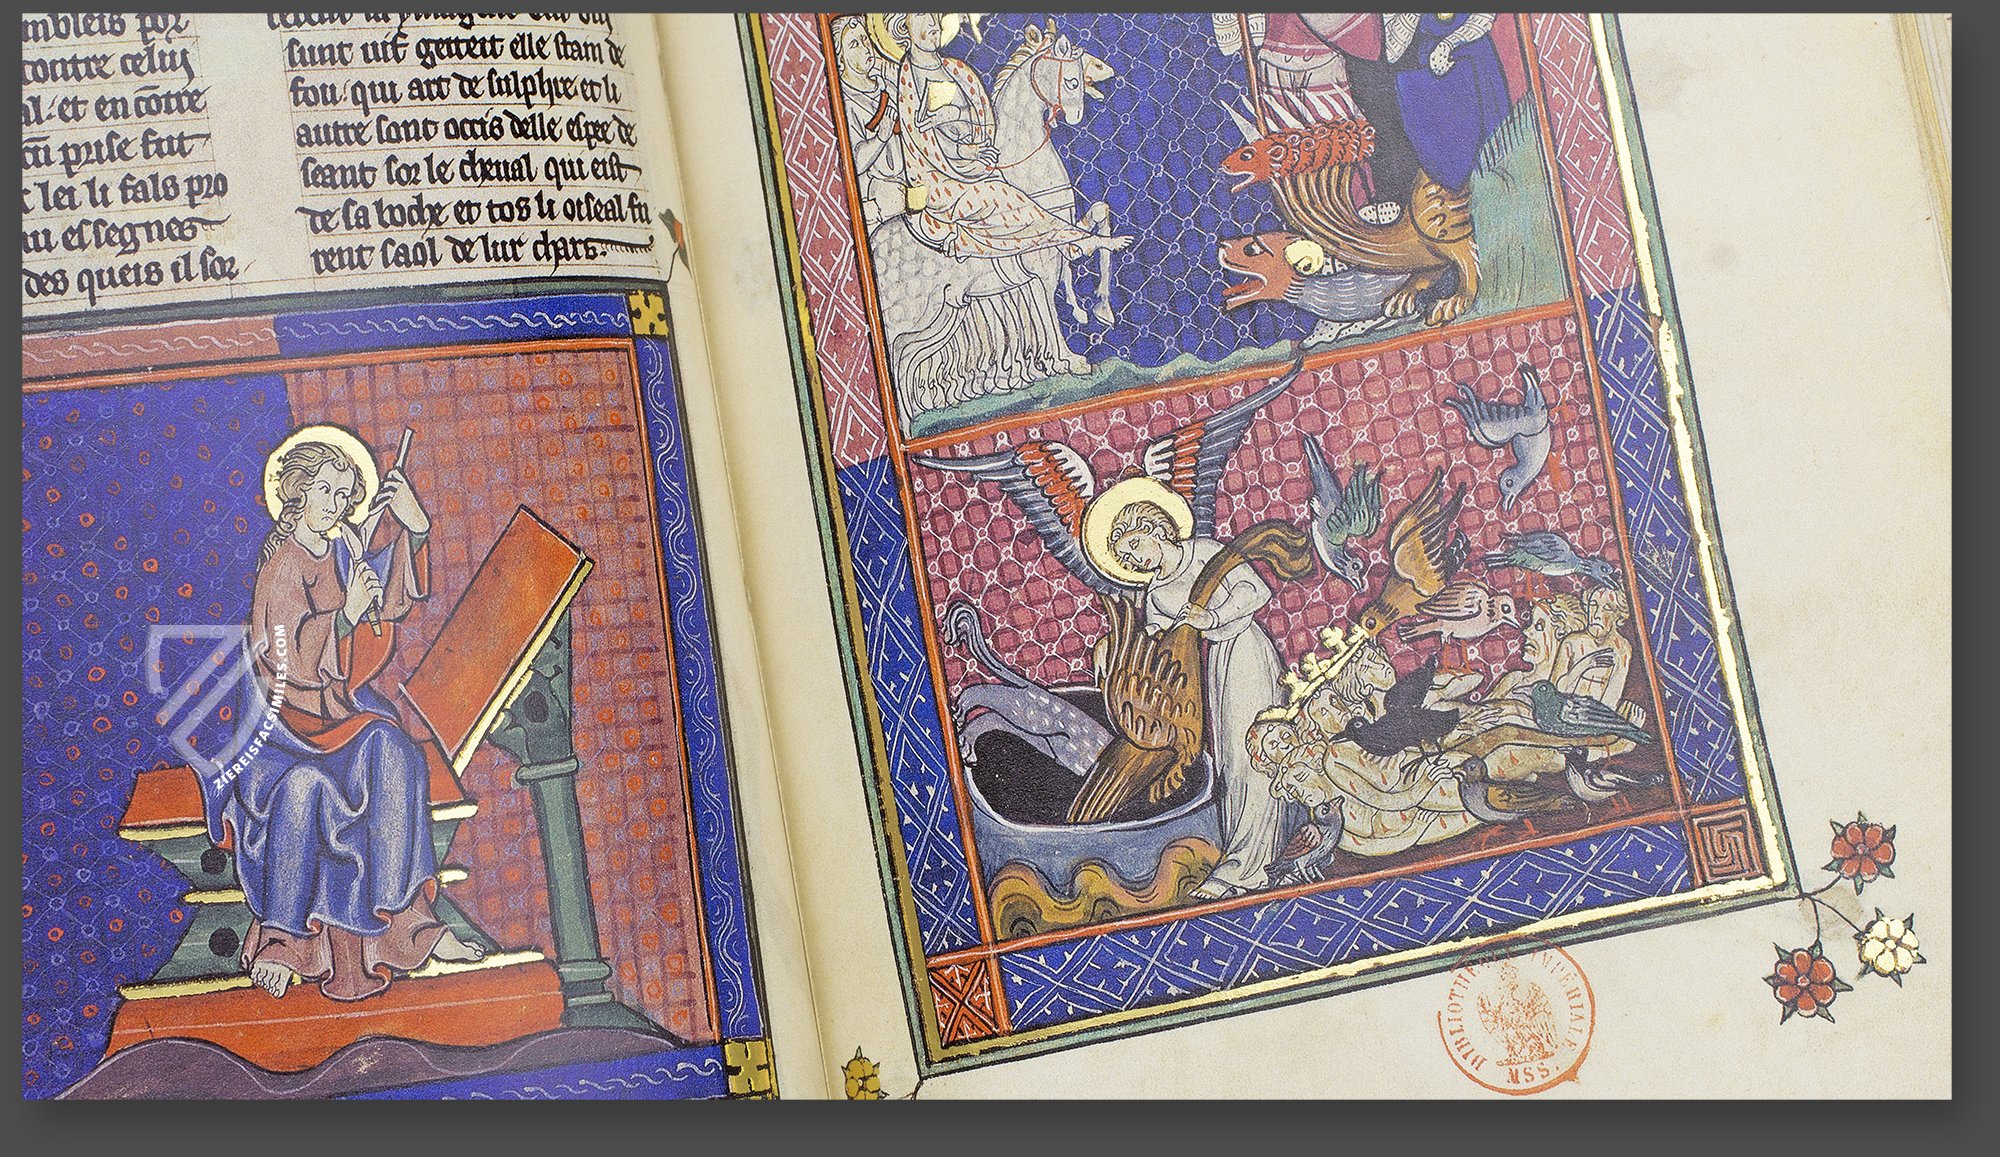 mbleis por
contre celuj
al· et en cōtre
cū prise fut
lei li fals pro
au el segnes
des queis il sor
sunt uif geiteit elle stam de
fou· qui art de sulphre et li
autre sont occis delle espee de
seant sor le cheual qui eist
de sa boche et tos li oiseal fu
rent saol de lur chars·
ZIEREISFACSIMILES.COM
BIBLIOTHEQUE IMPERIALE
MSS.